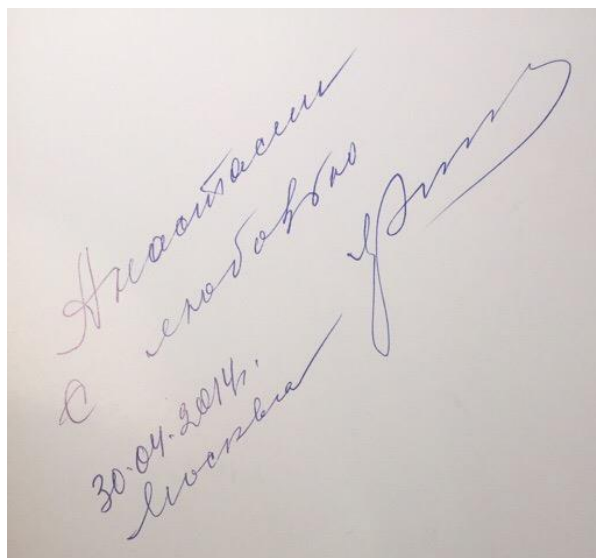 Анастасии
С любовью
30.04.2014г.
Москва